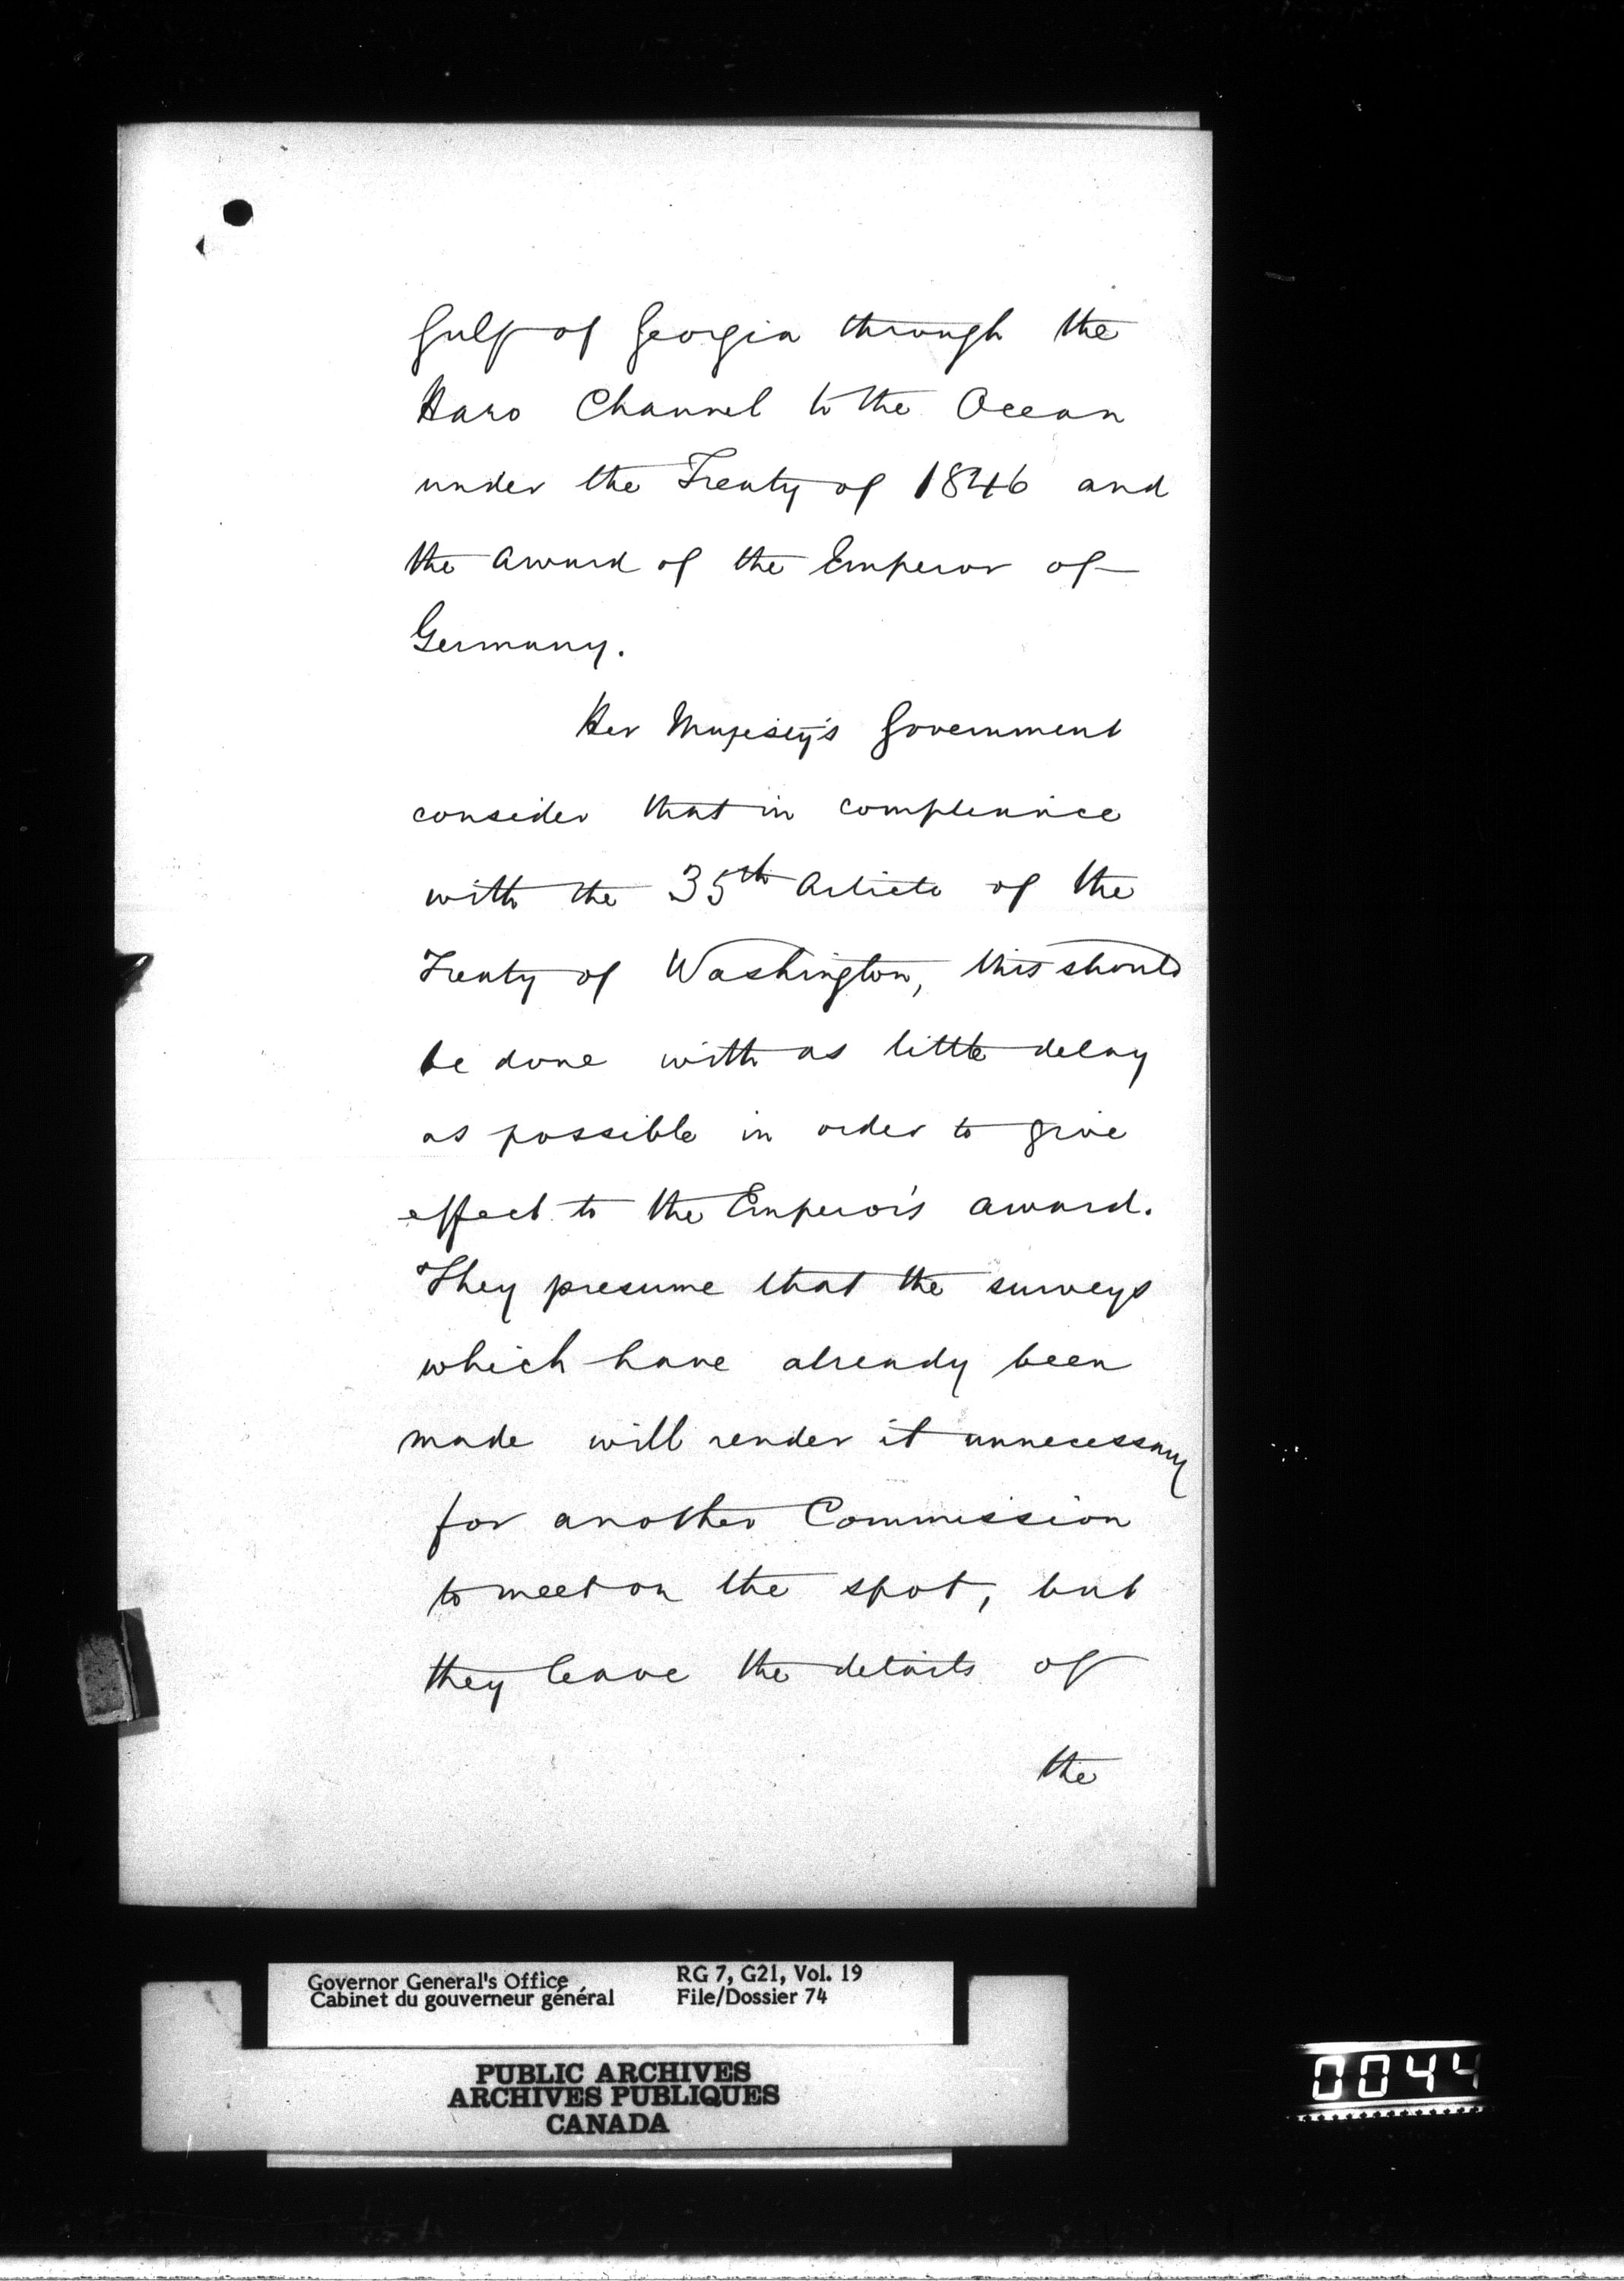 Gulf of Georgia through the
Haro Channel to the Ocean
under the Treaty of 1846 and
the award of the Emperor of
Germany.
Her Majesty's Government
consider that in compliance
with the 35th Article of the
Treaty of Washington, this should
be done with as little delay
as possible in order to give
effect to the Emperor's award.
They presume that the surveys
which have already been
made will render it unnecessary
for another Commission
to meet on the spot, but
they leave the details of
the
Governor General's Office
Cabinet du gouverneur général
RG 7, G21, Vol. 19
File/Dossier 74
PUBLIC ARCHIVES
ARCHIVES PUBLIQUES
CANADA
0044